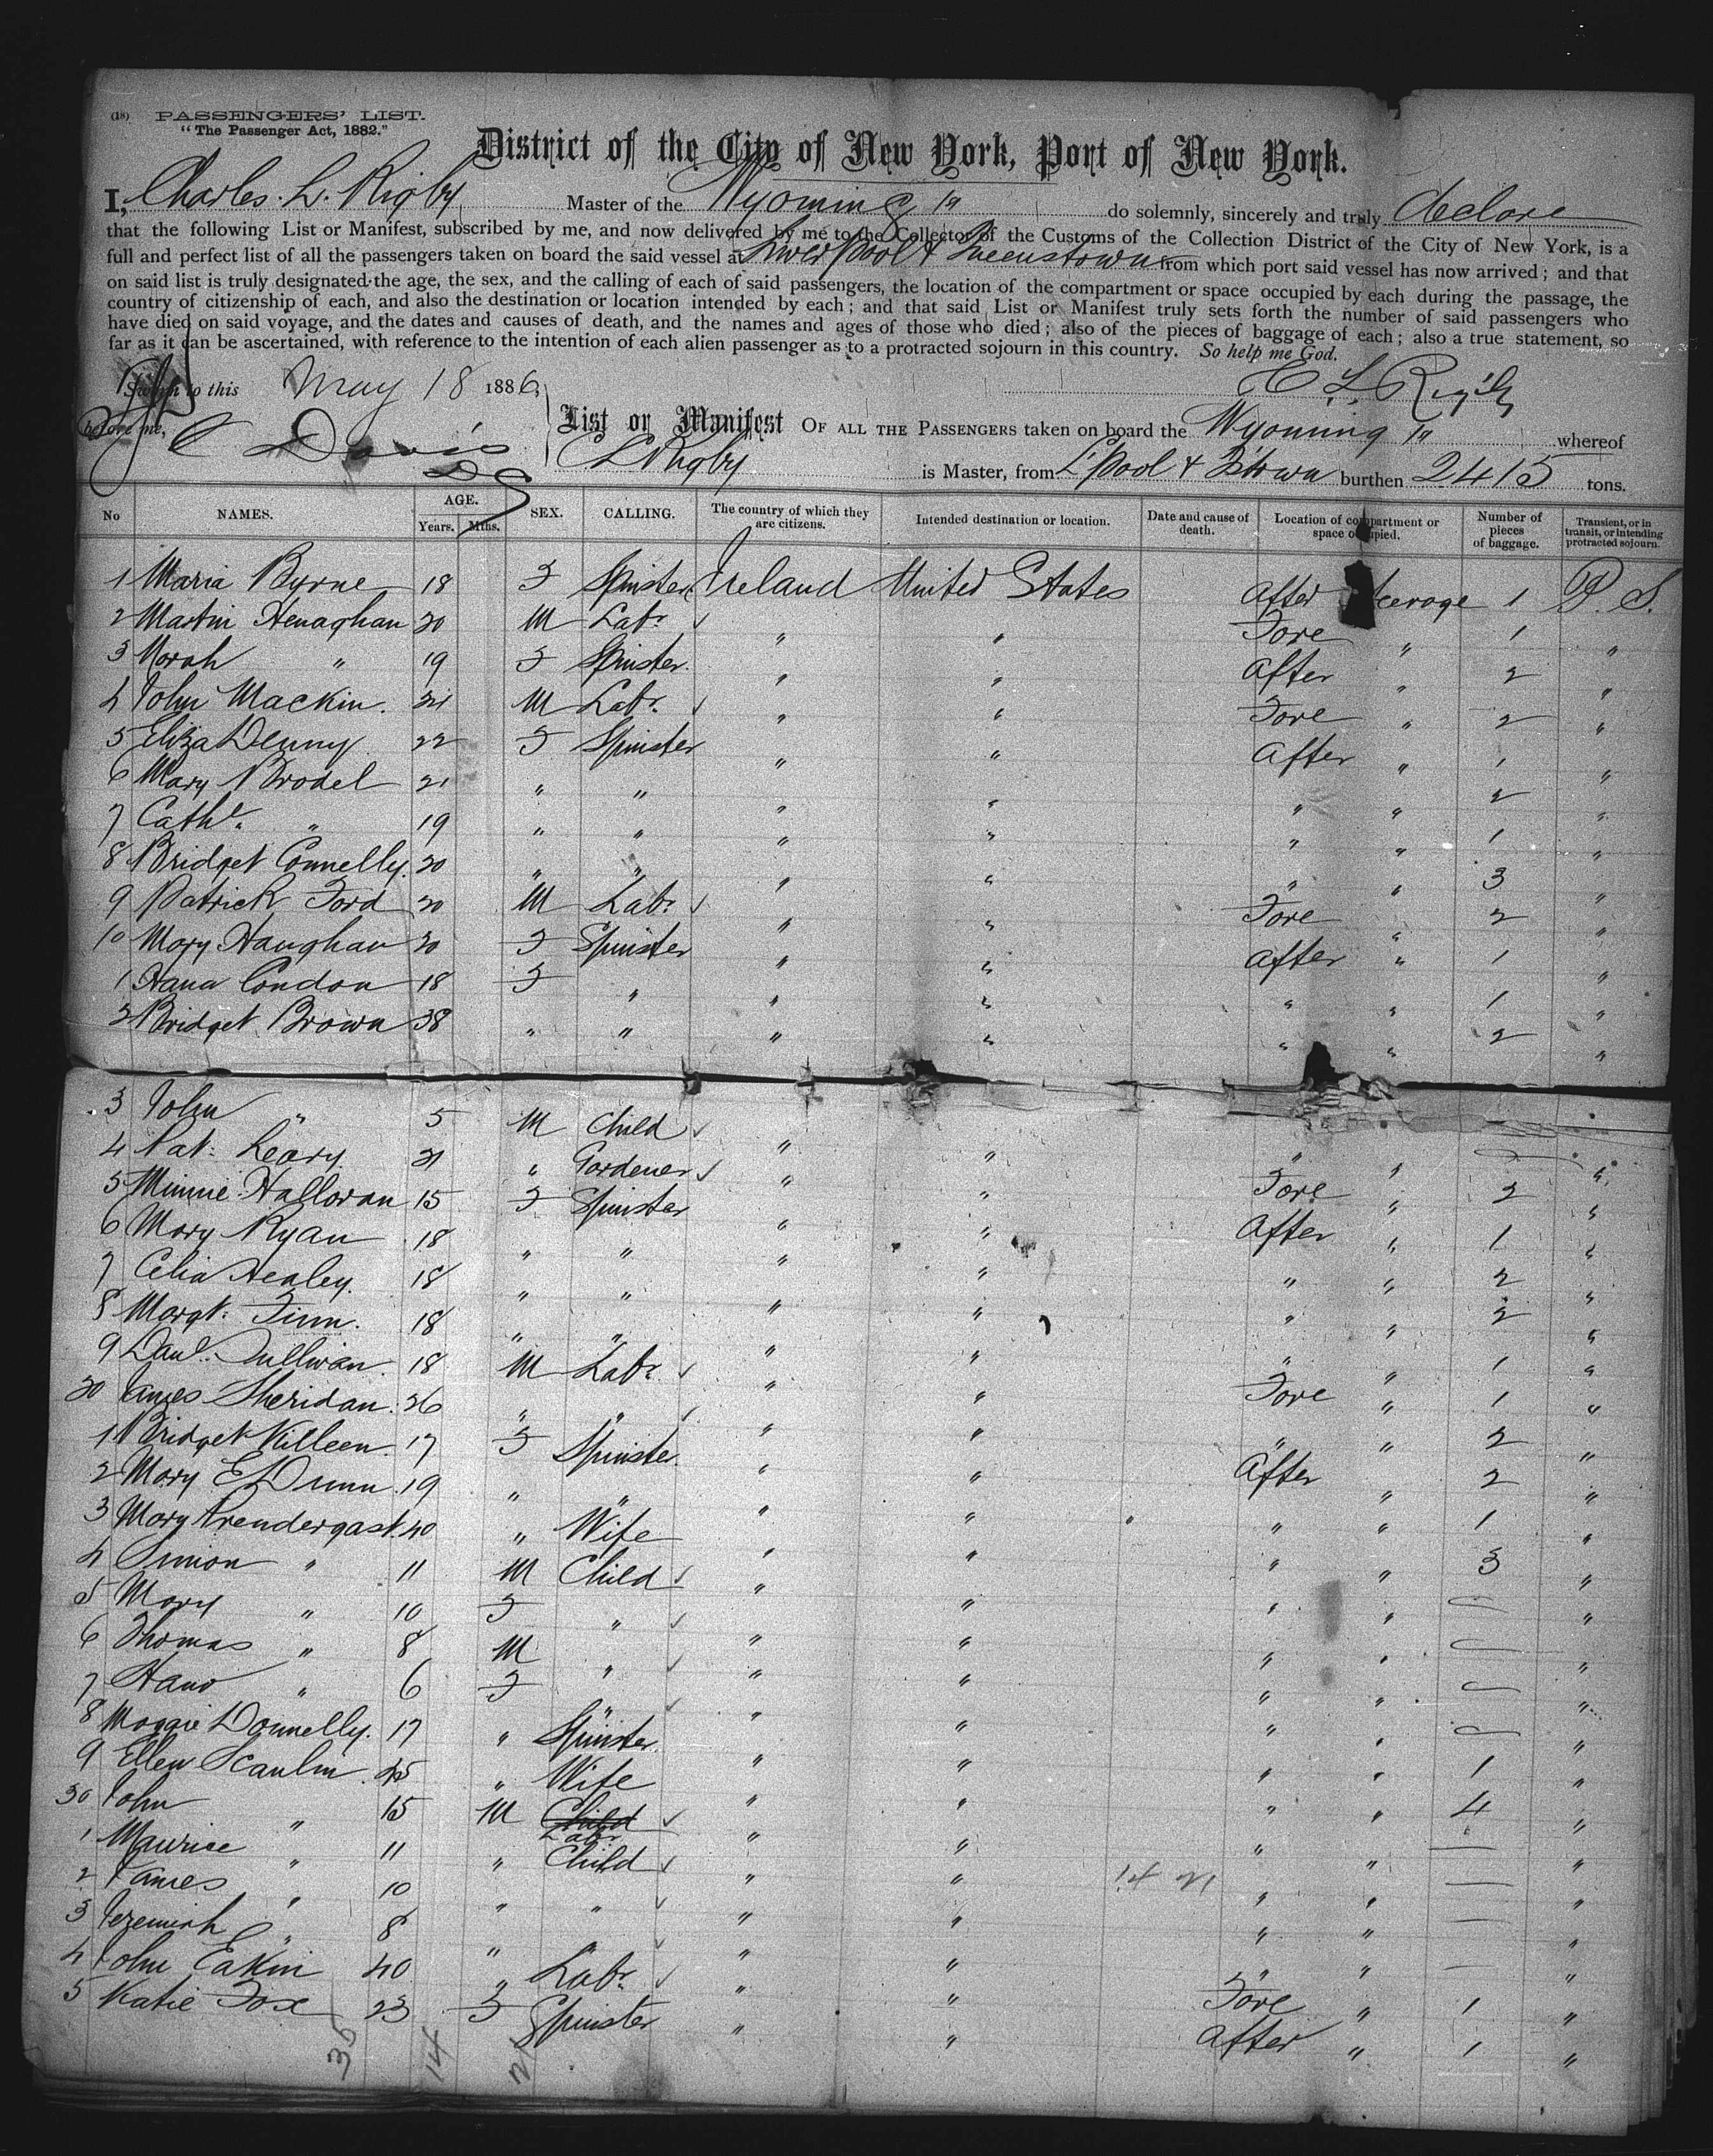 (18) PASSENGERS' LIST.
"The Passenger Act, 1882."
District of the City of New York, Port of New York.
I, Charles. L. Rigby Master of the Wyoming " do solemnly, sincerely and truly declare
that the following List or Manifest, subscribed by me, and now delivered by me to the Collector of the Customs of the Collection District of the City of New York, is a
full and perfect list of all the passengers taken on board the said vessel at Liverpool & Queenstown from which port said vessel has now arrived; and that
on said list is truly designated the age, the sex, and the calling of each of said passengers, the location of the compartment or space occupied by each during the passage, the
country of citizenship of each, and also the destination or location intended by each; and that said List or Manifest truly sets forth the number of said passengers who
have died on said voyage, and the dates and causes of death, and the names and ages of those who died; also of the pieces of baggage of each; also a true statement, so
far as it can be ascertained, with reference to the intention of each alien passenger as to a protracted sojourn in this country. So help me God.
Sworn to this May 18 1886, C. L. Rigby
before me, C Davis
DC
List or Manifest OF ALL THE PASSENGERS taken on board the Wyoming " whereof
C L Rigby is Master, from L'pool & Q'town burthen 2415 tons.
No NAMES. AGE. Years. Mths. SEX. CALLING. The country of which they are citizens. Intended destination or location. Date and cause of death. Location of compartment or space occupied. Number of pieces of baggage. Transient, or in transit, or intending protracted sojourn.
1 Maria Byrne 18 F Spinster Ireland United States After Steerage 1 P. S.
2 Martin Henaghan 20 M Labr. " " Fore " 1 "
3 Norah " 19 F Spinster. " " After " 2 "
4 John Mackin. 21 M Labr. " " Fore " 2 "
5 Eliza Denny 22 F Spinster " " After " 1 "
6 Mary Brodel 21 " " " " " " 2 "
7 Cathe. " 19 " " " " " " 1 "
8 Bridget Connelly. 20 " " " " " " 3 "
9 Patrick Ford 20 M Labr. " " Fore " 2 "
10 Mary Haughan 20 F Spinster " " After " 1 "
1 Hana Condon 18 F " " " " " 1 "
2 Bridget Brown 38 " " " " " " 2 "
3 John " 5 M Child " " " " — "
4 Pat: Leary. 21 " Gardener " " Fore " 2 "
5 Minnie Halloran 15 F Spinster " " After " 1 "
6 Mary Ryan 18 " " " " " " 2 "
7 Celia Healey. 18 " " " " " " 2 "
8 Margt: Finn. 18 " " " " " " 1 "
9 Danl: Sullivan. 18 M Labr. " " Fore " 1 "
20 James Sheridan. 26 " " " " " " 2 "
1 Bridget Killeen. 17 F Spinster. " " After " 2 "
2 Mary E Dunn. 19 " " " " " " 1 "
3 Mary Prendergast. 40 " Wife " " " " 3 "
4 Simon " 11 M Child " " " " — "
5 Mary " 10 F " " " " " — "
6 Thomas " 8 M " " " " " — "
7 Hano " 6 F " " " " " — "
8 Maggie Donnelly. 17 " Spinster. " " " " 1 "
9 Ellen Scanlin. 45 " Wife " " " " 4 "
30 John " 15 M Child Labr " " " " — "
1 Maurice " 11 " Child " " " " — "
2 James " 10 " " " " 14 21 " " — "
3 Jeremiah " 8 " " " " " " — "
4 John Eakin 40 " Labr. " " Fore " 1 "
5 Katie Fox 23 F Spinster " " After " 1 "
35 14 21